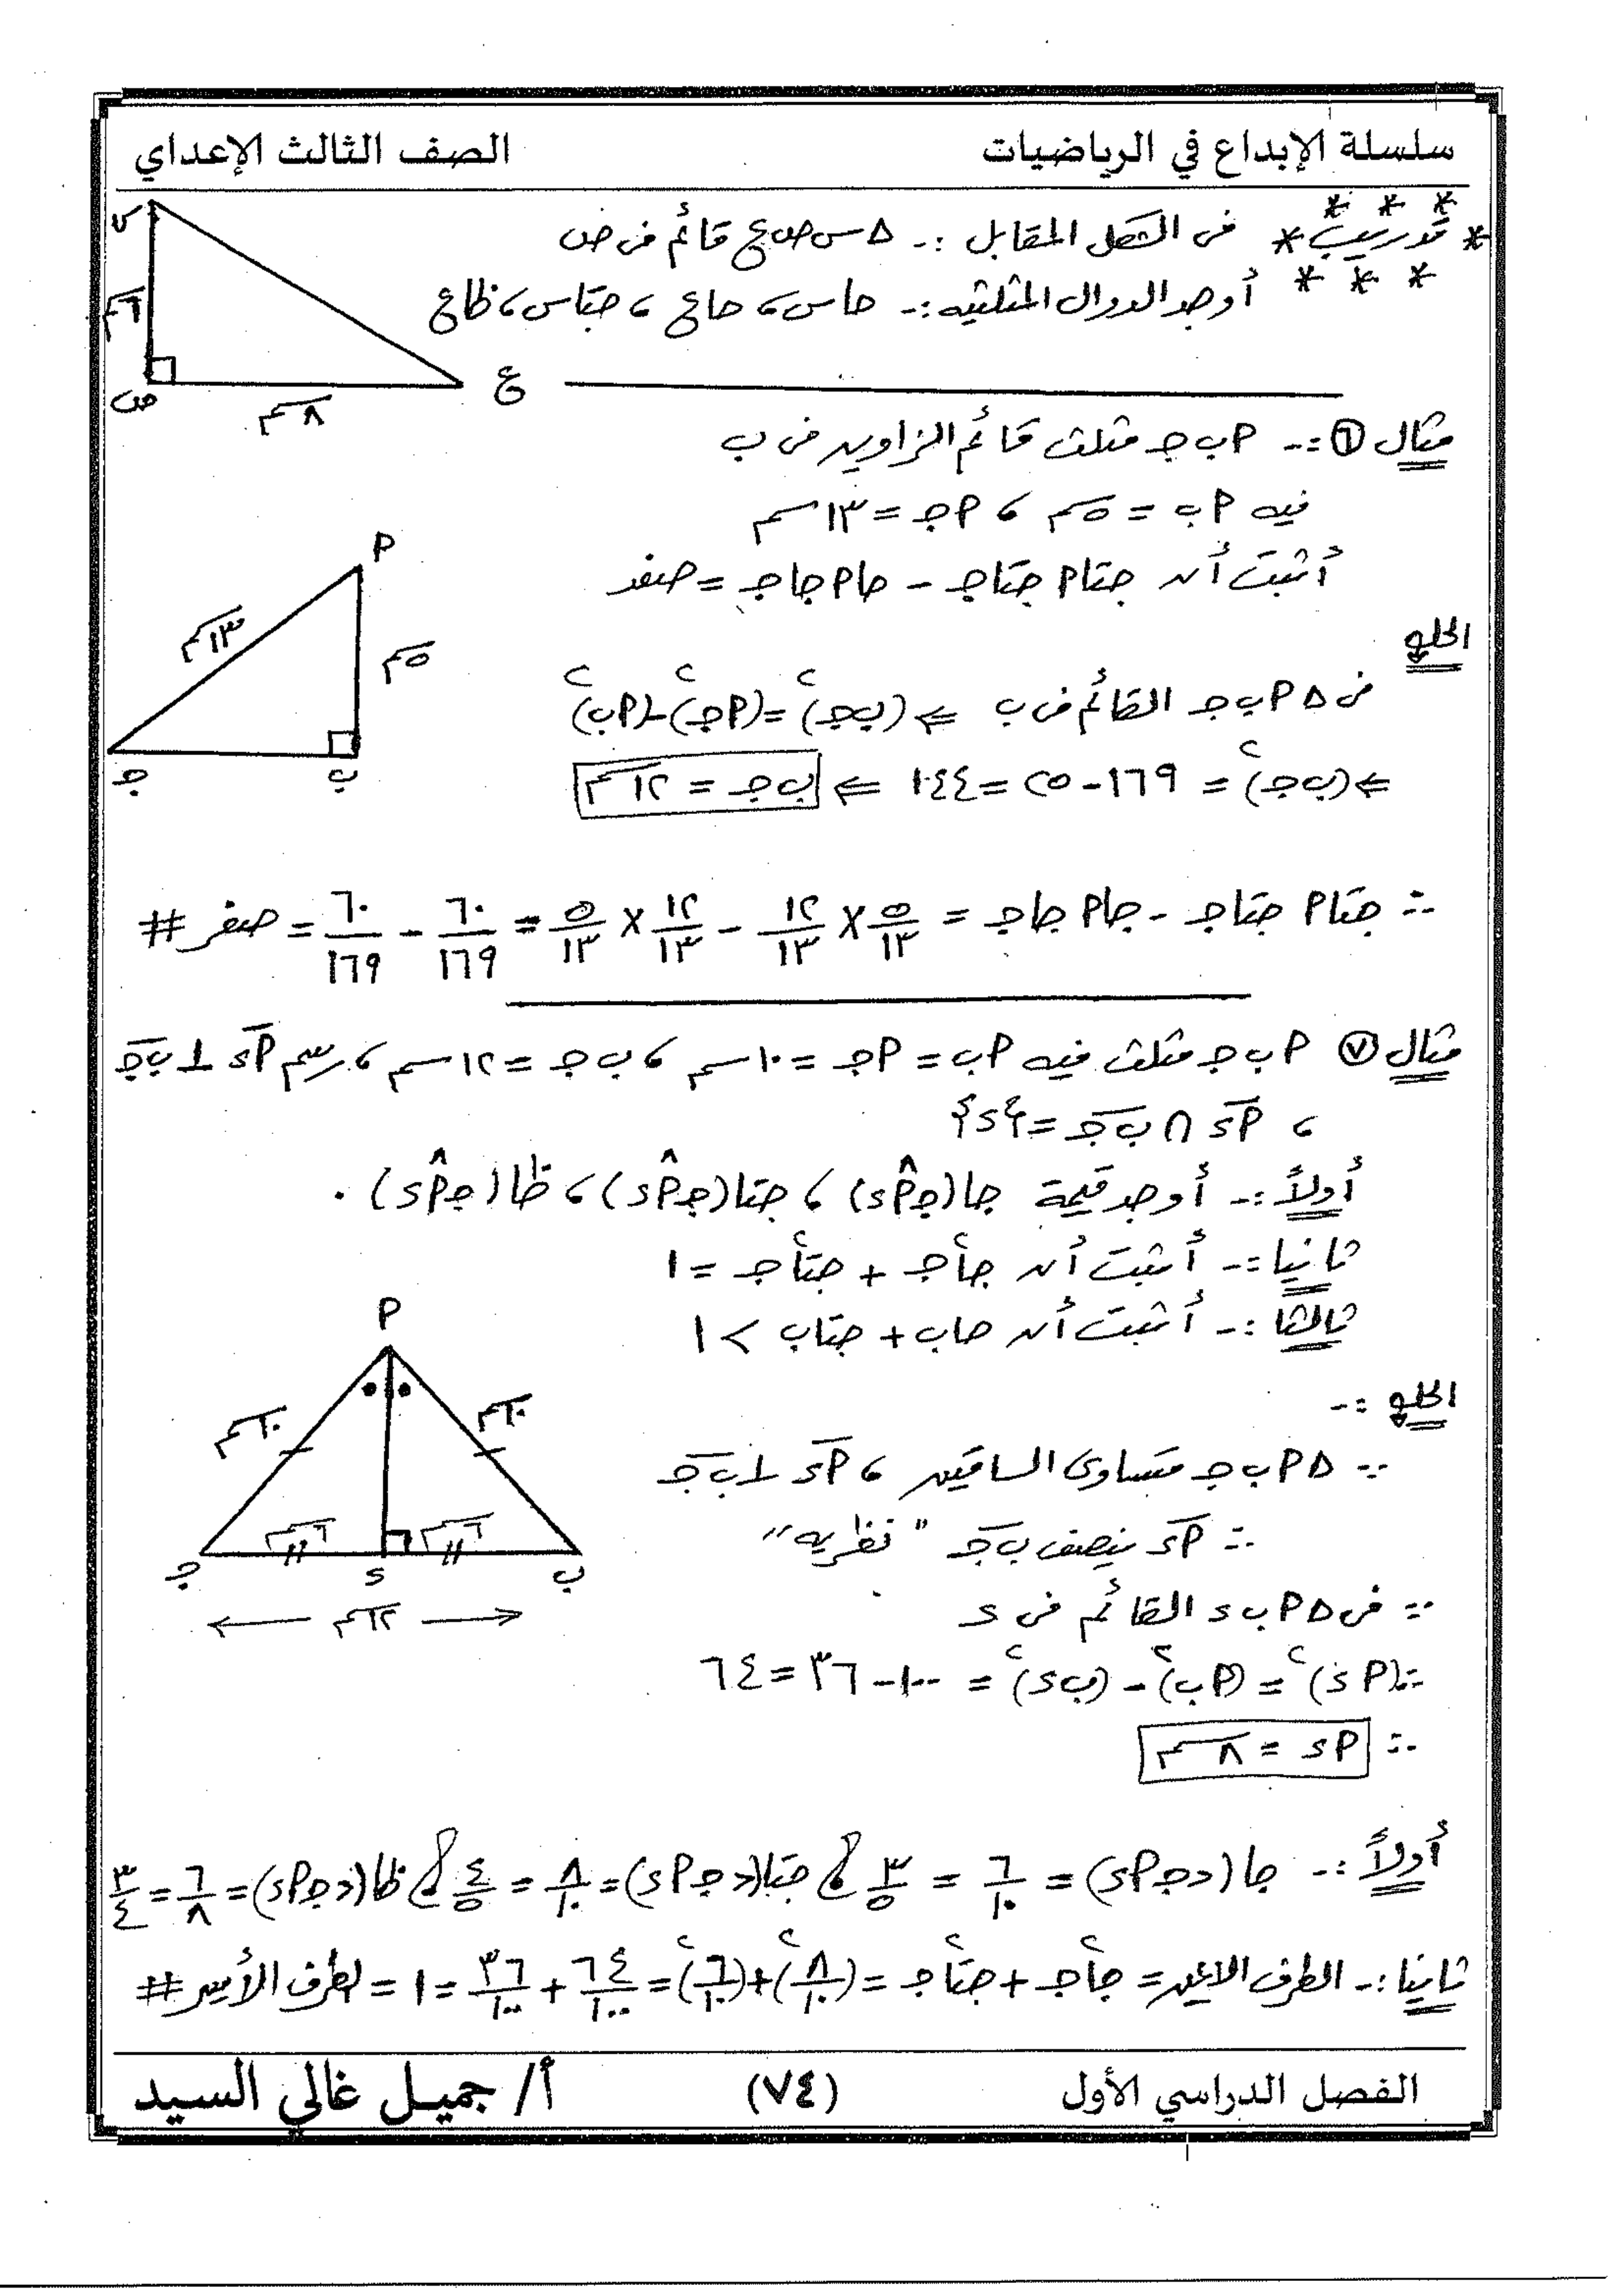 سلسلة الإبداع في الرياضيات
الصف الثالث الإعداي
* تدريب * فى الشكل المقابل :- △ س ص ع قائم فى ص
أوجد الدوال المثلثيه :- جاس ، جاع ، جتاس ، ظاع
س
٦سم
ص
٨سم
ع
مثال ⑥ :- P ب جـ مثلث قائم الزاويه فى ب
فيه P ب = ٥سم ، P جـ = ١٣سم
أثبت أن جتاP جتاجـ - جاP جاجـ = صفر
الحل
P
١٣سم
٥سم
جـ
ب
فى △ P ب جـ القائم فى ب ⇐ (ب جـ)٢ = (P جـ)٢ - (P ب)٢
⇐ (ب جـ)٢ = ١٦٩ - ٢٥ = ١٤٤ ⇐ ب جـ = ١٢سم
∴ جتاP جتاجـ - جاP جاجـ = ٥/١٣ × ١٢/١٣ - ١٢/١٣ × ٥/١٣ = ٦٠/١٦٩ - ٦٠/١٦٩ = صفر #
مثال ⑦ P ب جـ مثلث فيه P ب = P جـ = ١٠سم ، ب جـ = ١٢سم ، رسم P ء ⊥ ب جـ
، P ء ∩ ب جـ = {ء}
أولاً :- أوجد قيمة جا(جـ P̂ ء) ، جتا(جـ P̂ ء) ، ظا(جـ P̂ ء) .
ثانيا :- أثبت أن جا٢جـ + جتا٢جـ = ١
ثالثا :- أثبت أن جاب + جتاب > ١
الحل :-
P
١٠سم
١٠سم
٦سم
٦سم
جـ
ء
ب
١٢سم
∵ △ P ب جـ متساوى الساقين ، P ء ⊥ ب جـ
∴ P ء ينصف ب جـ "نظريه"
∵ فى △ P ب ء القائم فى ء
∴ (P ء)٢ = (P ب)٢ - (ب ء)٢ = ١٠٠ - ٣٦ = ٦٤
∴ P ء = ٨سم
أولاً :- جا(د جـ P ء) = ٦/١٠ = ٣/٥ ، جتا(د جـ P ء) = ٨/١٠ = ٤/٥ ، ظا(د جـ P ء) = ٦/٨ = ٣/٤
ثانيا :- الطرف الايمن = جا٢جـ + جتا٢جـ = (٨/١٠)٢ + (٦/١٠)٢ = ٦٤/١٠٠ + ٣٦/١٠٠ = ١ = لطرف الأيسر #
الفصل الدراسي الأول
(٧٤)
أ/ جميل غالي السيد